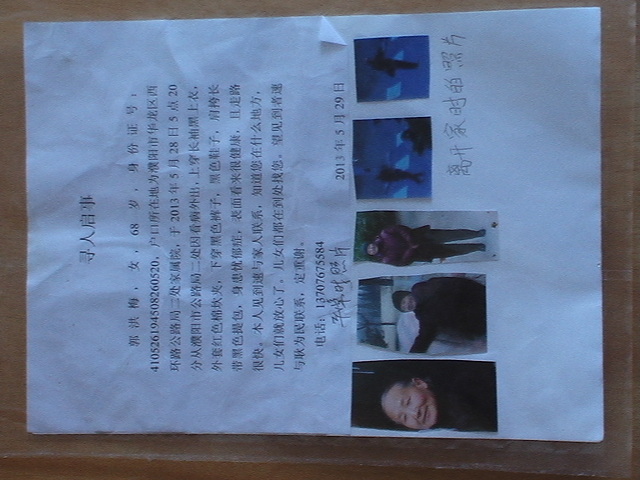 寻人启事
郭洪梅，女，68岁，身份证号：
410526194508260520，户口所在地为濮阳市华龙区西
环路公路局二处家属院，于2013年5月28日5点20
分从濮阳市公路局二处因看病外出，上穿长袖黑上衣，
外套红色棉坎夹，下穿黑色裤子，黑色鞋子，肩挎长
带黑色提包，身患忧郁症，表面看来很健康，且走路
很快。本人见到速与家人联系，知道您在什么地方，
儿女们就放心了。儿女们都在到处找您。望见到者速
与耿为民联系，定重谢。
电话：13707675584
2013年5月29日
平常时照片
离开家时的照片